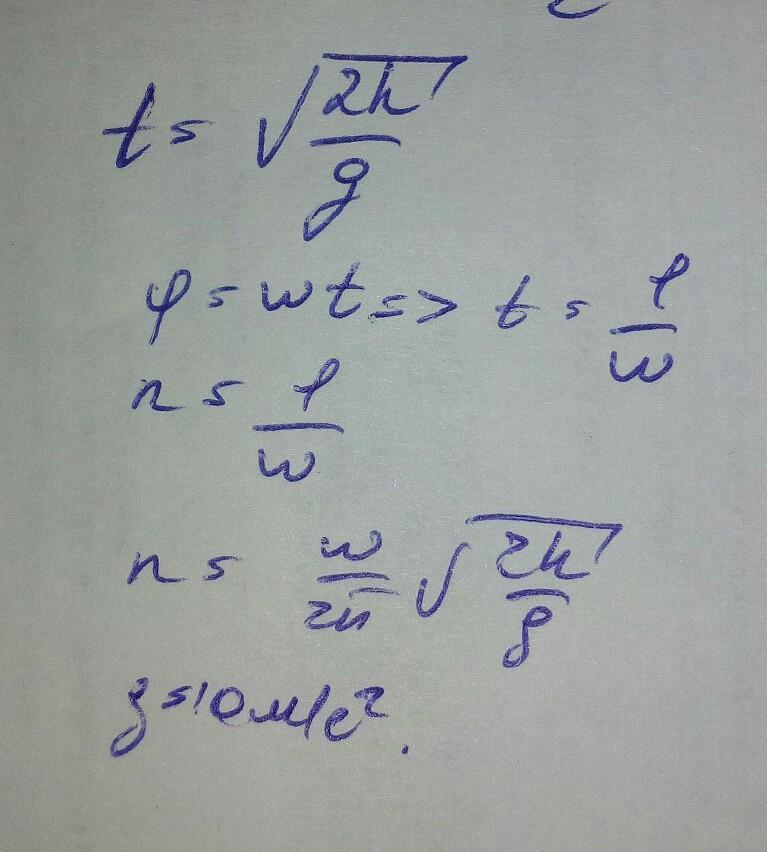 t = √(2h/g)
φ = ωt => t = φ/ω
n = φ/ω
n = ω/2π √(2h/g)
g = 10 м/с².